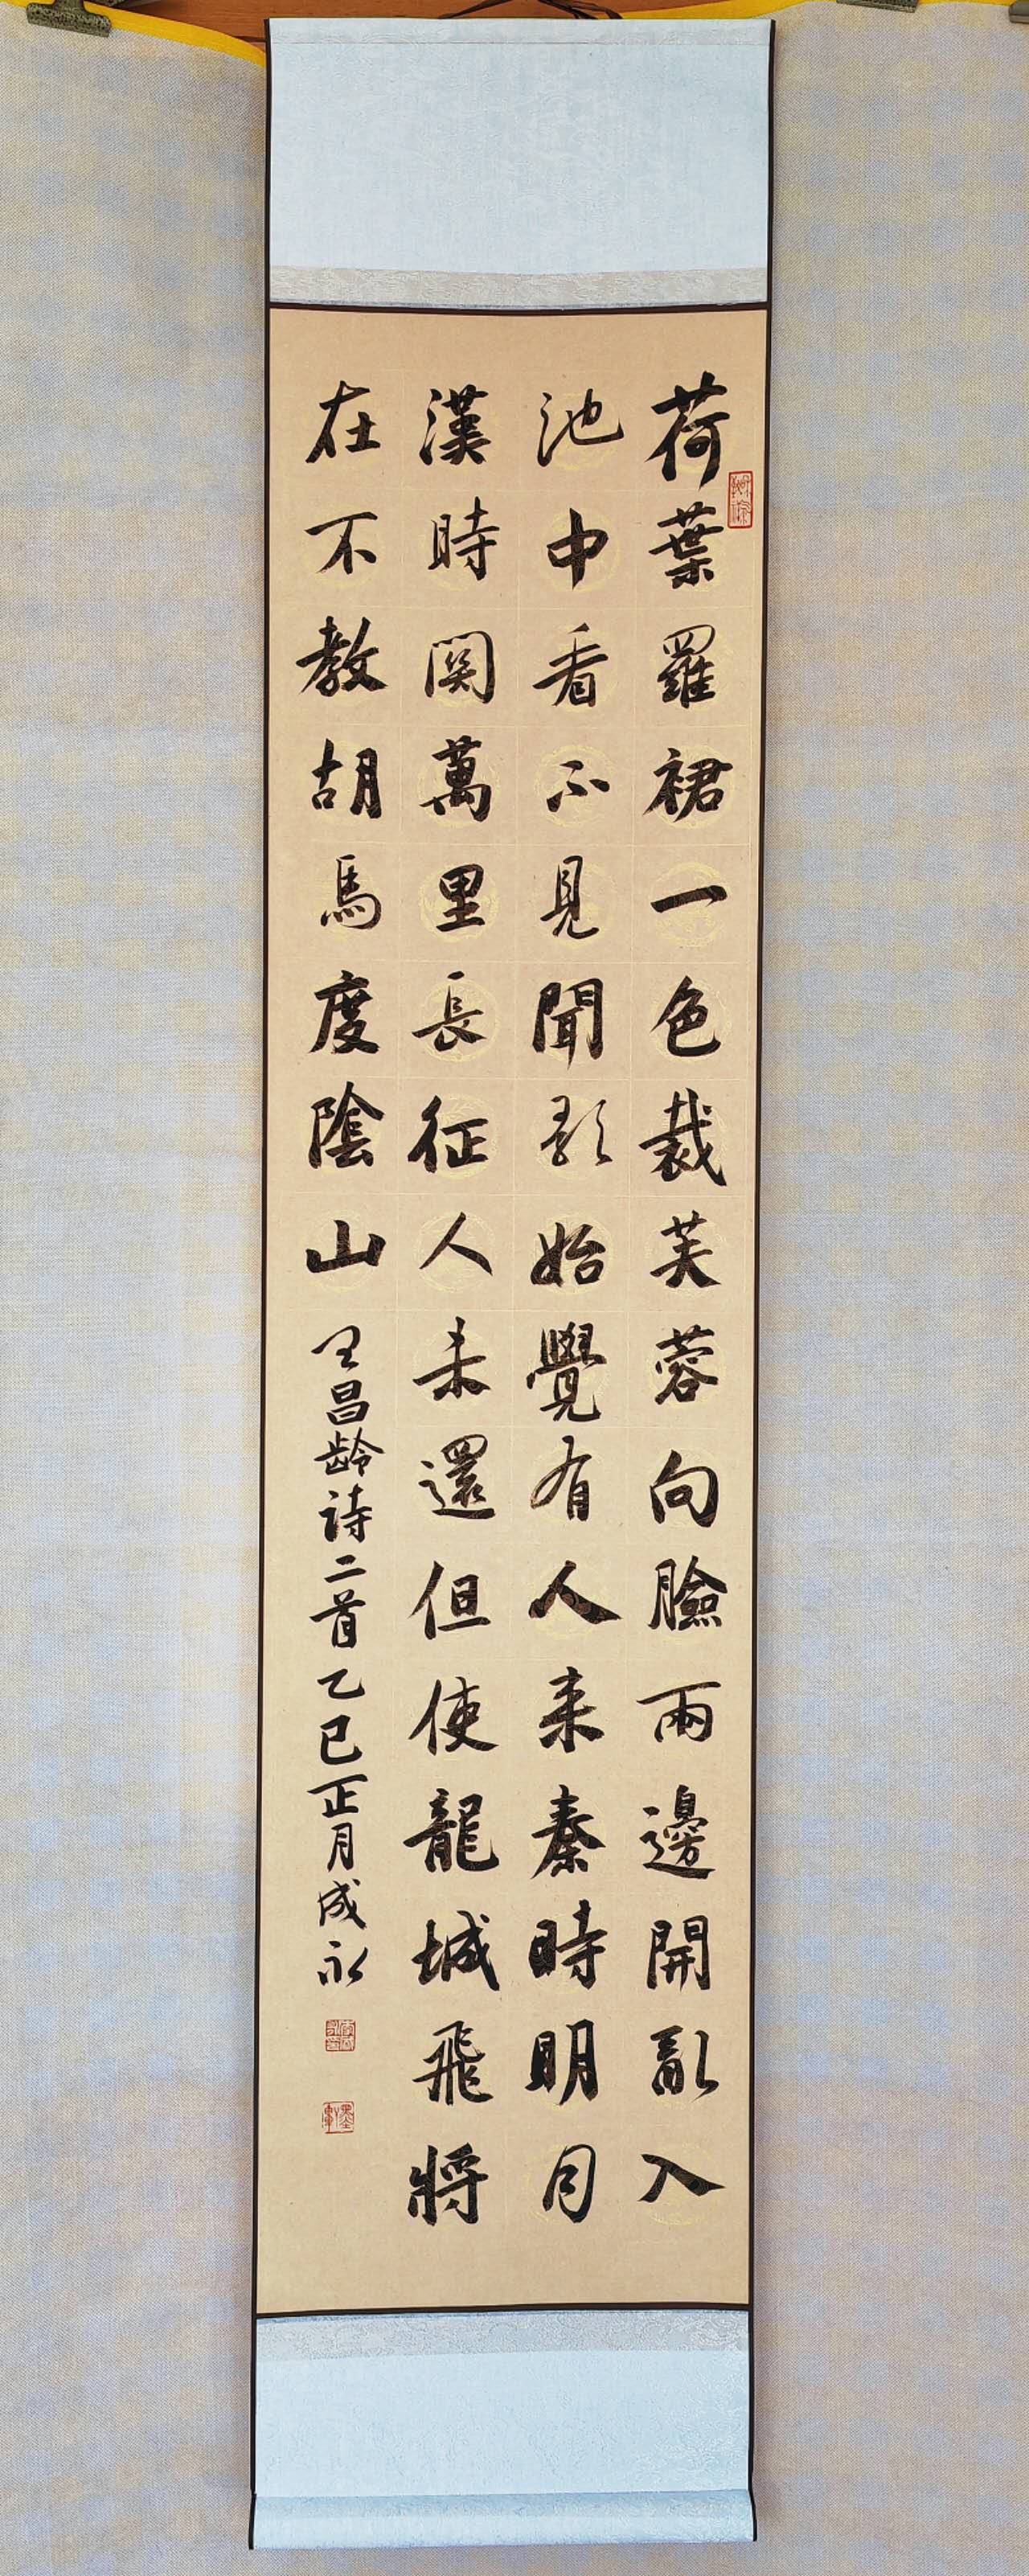 荷葉羅裙一色裁芙蓉向臉兩邊開亂入
池中看不見聞歌始覺有人来秦時明月
漢時関萬里長征人未還但使龍城飛將
在不教胡馬度陰山
王昌齡詩二首乙巳正月成永